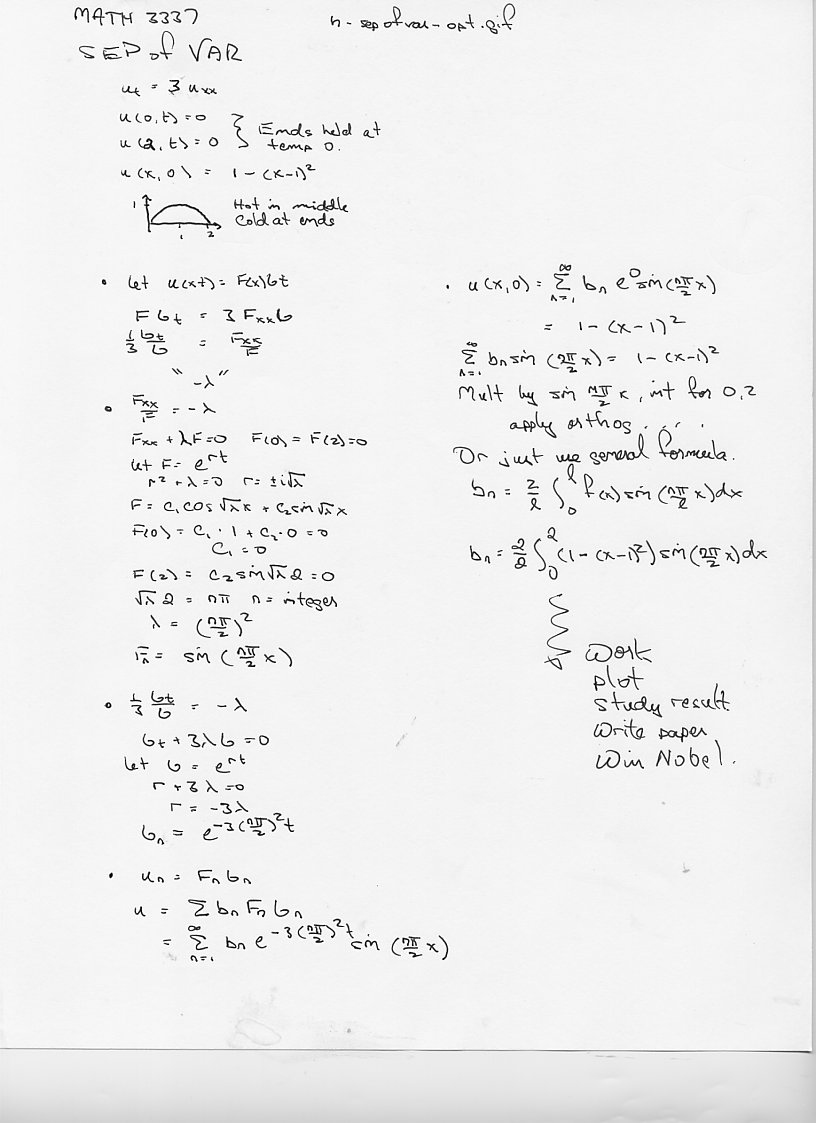 MATH 3337
h-sepofvar-opt.gif
SEP of VAR
u_t = 3 u_xx
u(0,t)=0
u(2,t)=0 } Ends held at temp 0.
u(x,0) = 1-(x-1)^2
1 1 2 Hot in middle
Cold at ends
• Let u(xt) = F(x)Gt
F G_t = 3 F_xx G
1/3 G_t/G = F_xx/F
"-λ"
• F_xx/F = -λ
F_xx + λF=0 F(0) = F(2)=0
let F = e^{rt}
r^2 + λ=0 r= ±i√λ
F = C_1 cos √λ x + C_2 sin √λ x
F(0) = C_1 · 1 + C_2 · 0 = 0
C_1 = 0
F(2) = C_2 sin √λ 2 = 0
√λ 2 = nπ n = integer
λ = (nπ/2)^2
F_n = sin (nπ/2 x)
• 1/3 G_t/G = -λ
G_t + 3λG = 0
Let G = e^{rt}
r + 3λ = 0
r = -3λ
G_n = e^{-3(nπ/2)^2 t}
• u_n = F_n G_n
u = Σ b_n F_n G_n
= Σ_{n=1}^∞ b_n e^{-3(nπ/2)^2 t} sin (nπ/2 x)
• u(x,0) = Σ_{n=1}^∞ b_n e^0 sin(nπ/2 x)
= 1-(x-1)^2
Σ_{n=1}^∞ b_n sin (nπ/2 x) = 1-(x-1)^2
Mult by sin mπ/2 x, int for 0,2
apply orthog. . . .
Or just use general formula.
b_n = 2/l ∫_0^l f(x) sin (nπ/l x) dx
b_n = 2/2 ∫_0^2 (1-(x-1)^2) sin(nπ/2 x) dx
Work
plot
Study result
Write paper
Win Nobel.